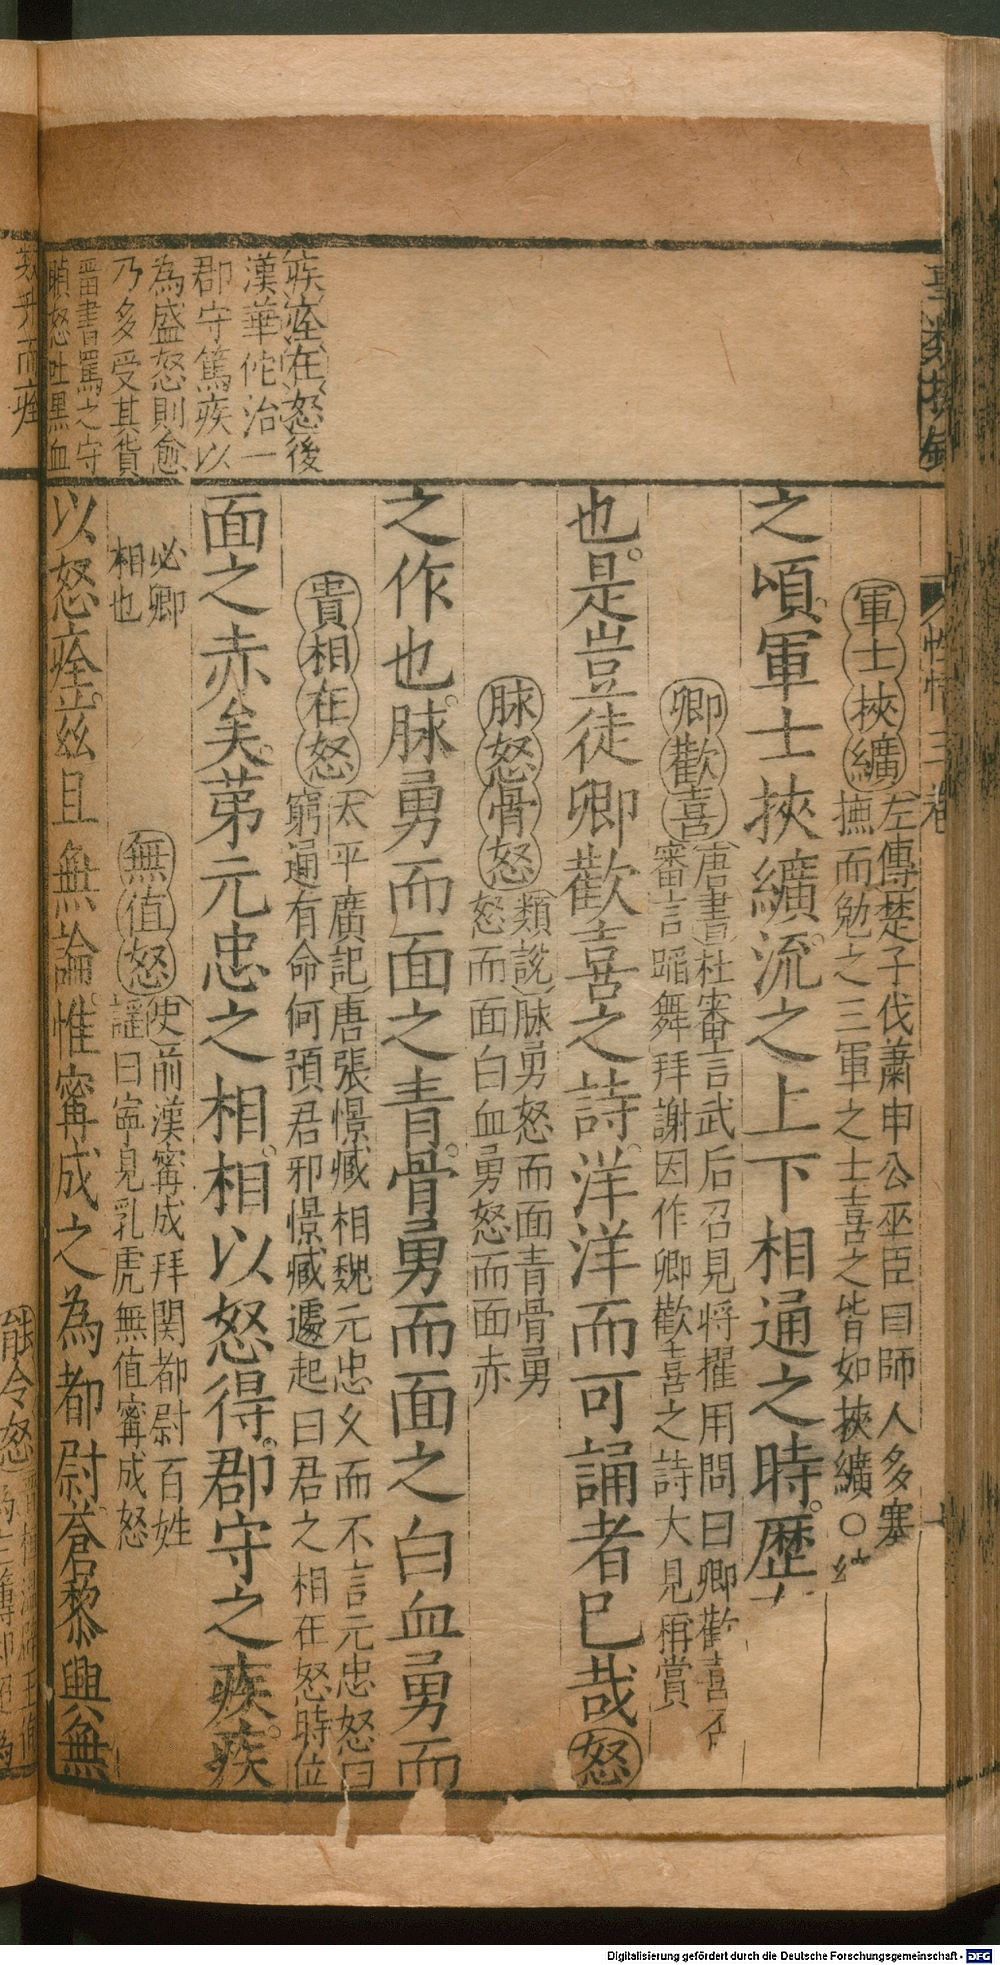 性情三卷
軍士挾纊
左傳楚子伐蕭申公巫臣曰師人多寒
撫而勉之三軍之士喜之皆如挾纊〇
之頃軍士挾纊流之上下相通之時歷
卿歡喜
唐書杜審言武后召見将擢用問曰卿歡喜否
審言蹈舞拜謝因作卿歡喜之詩大見稱賞
也是豈徒卿歡喜之詩洋洋而可誦者巳哉怒
脉怒骨怒
類說脉勇怒而面青骨勇
怒而面白血勇怒而面赤
之作也脉勇而面之青骨勇而面之白血勇而
貴相在怒
太平廣記唐張憬臧相魏元忠久而不言元忠怒曰
窮通有命何預君邪憬臧遽起曰君之相在怒時位
面之赤矣苐元忠之相相以怒得郡守之疾疾
必卿
相也
無值怒
史前漢寗成拜関都尉百姓
謡曰寜見乳虎無值寗成怒
以怒痊茲且無論惟寗成之為都尉蒼黎興無
疾痊在怒後
漢華佗治一
郡守篤疾以
為盛怒則愈
乃多受其貨
畱書罵之守
瞋怒吐黒血
数升而痊
能令怒
Digitalisierung gefördert durch die Deutsche Forschungsgemeinschaft - DFG